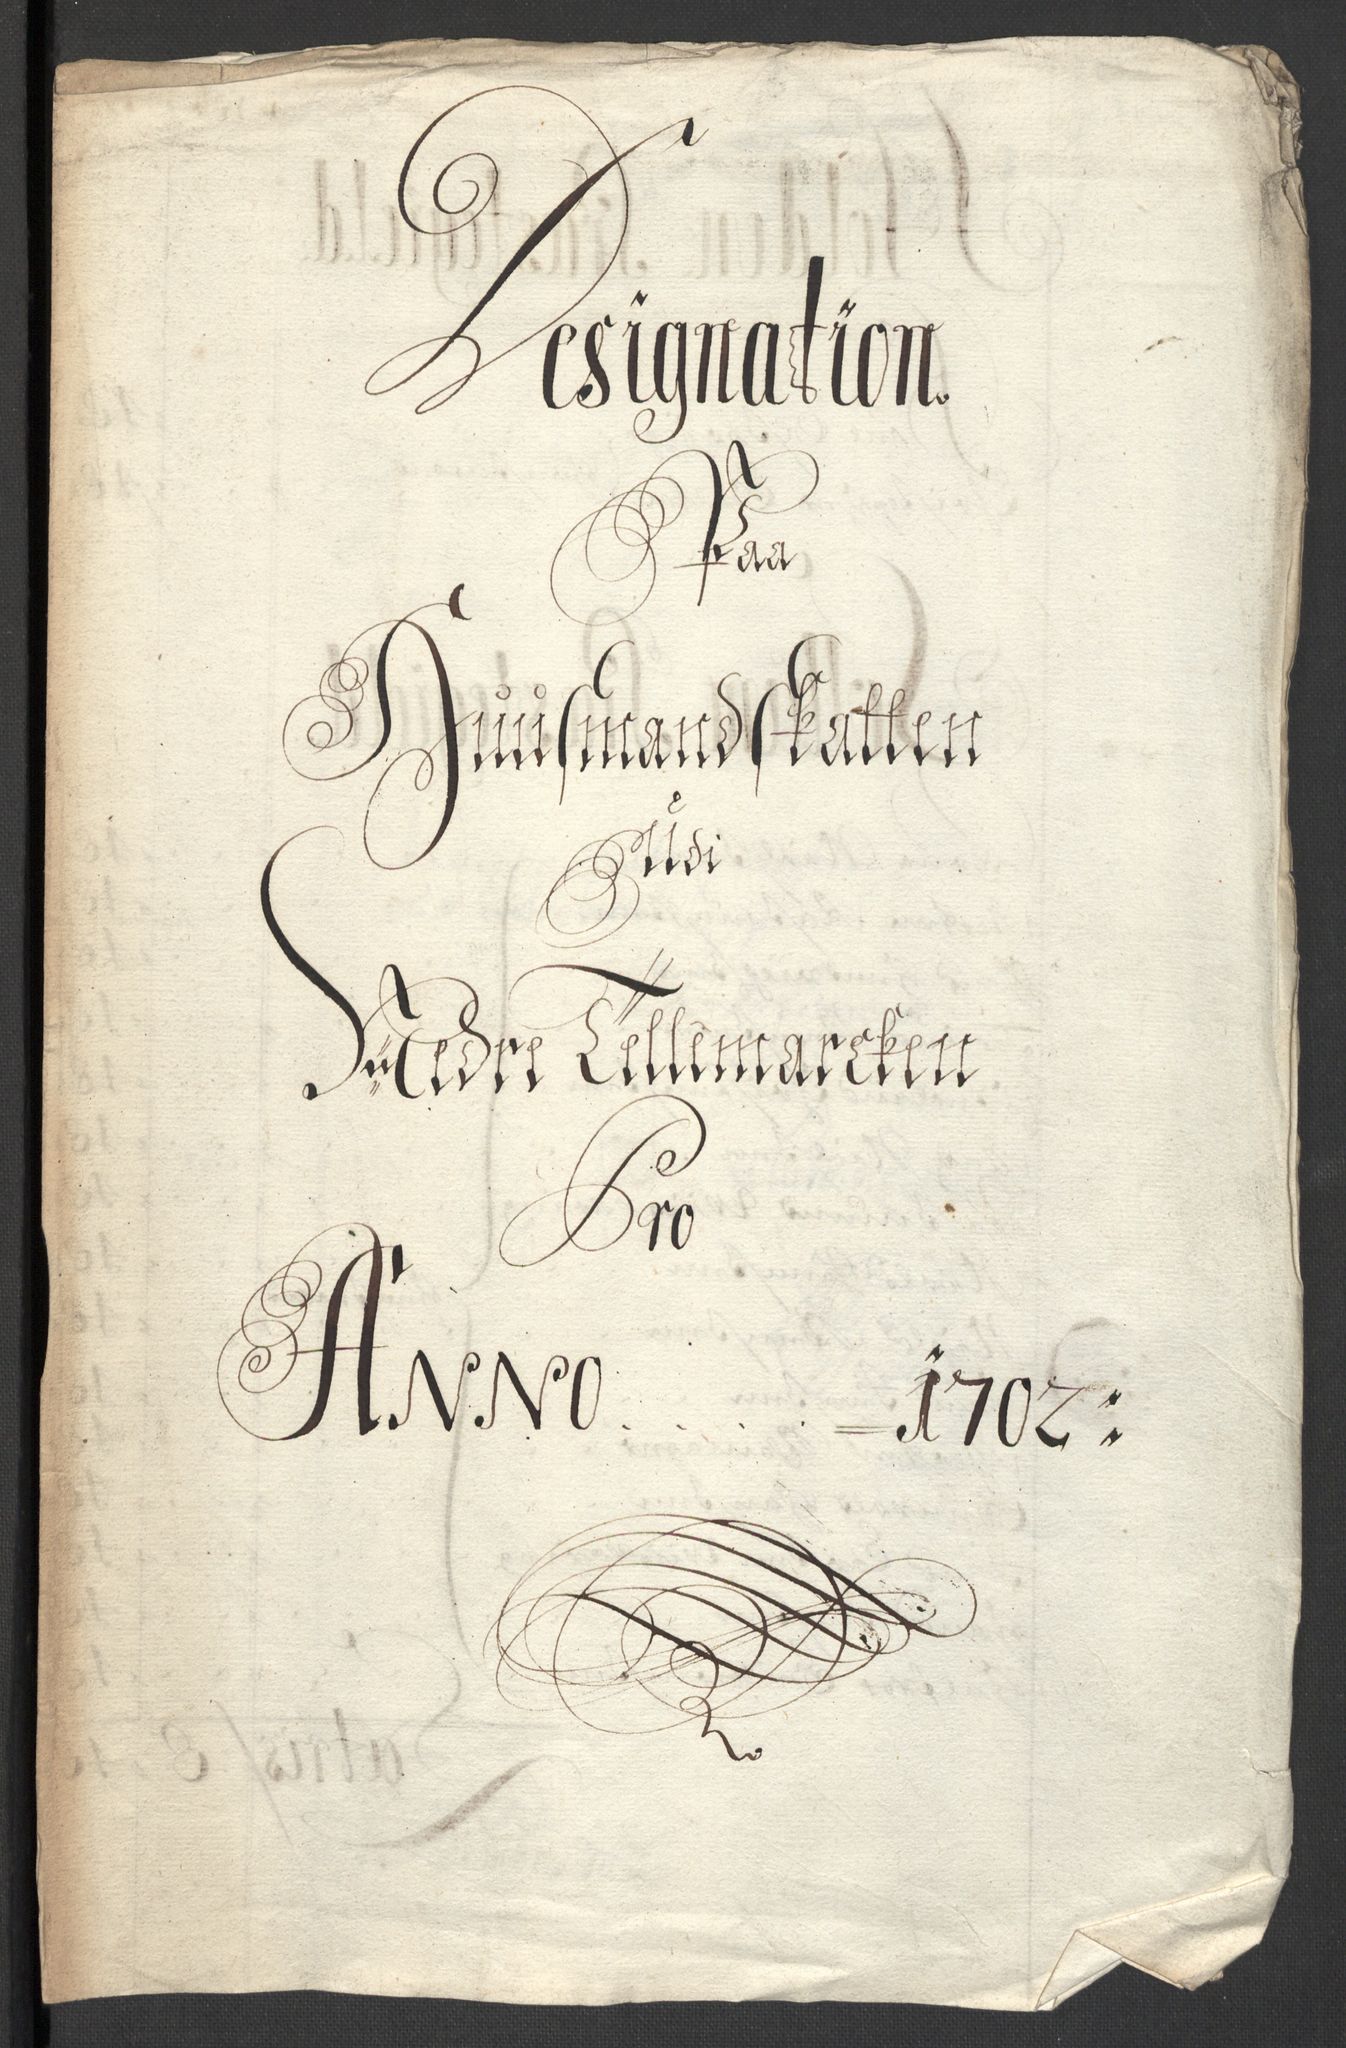 Designation.
Paa
Huusmandskatten
Udi
Nedre Tellemarcken
Pro
Anno . . . . . = 1702: